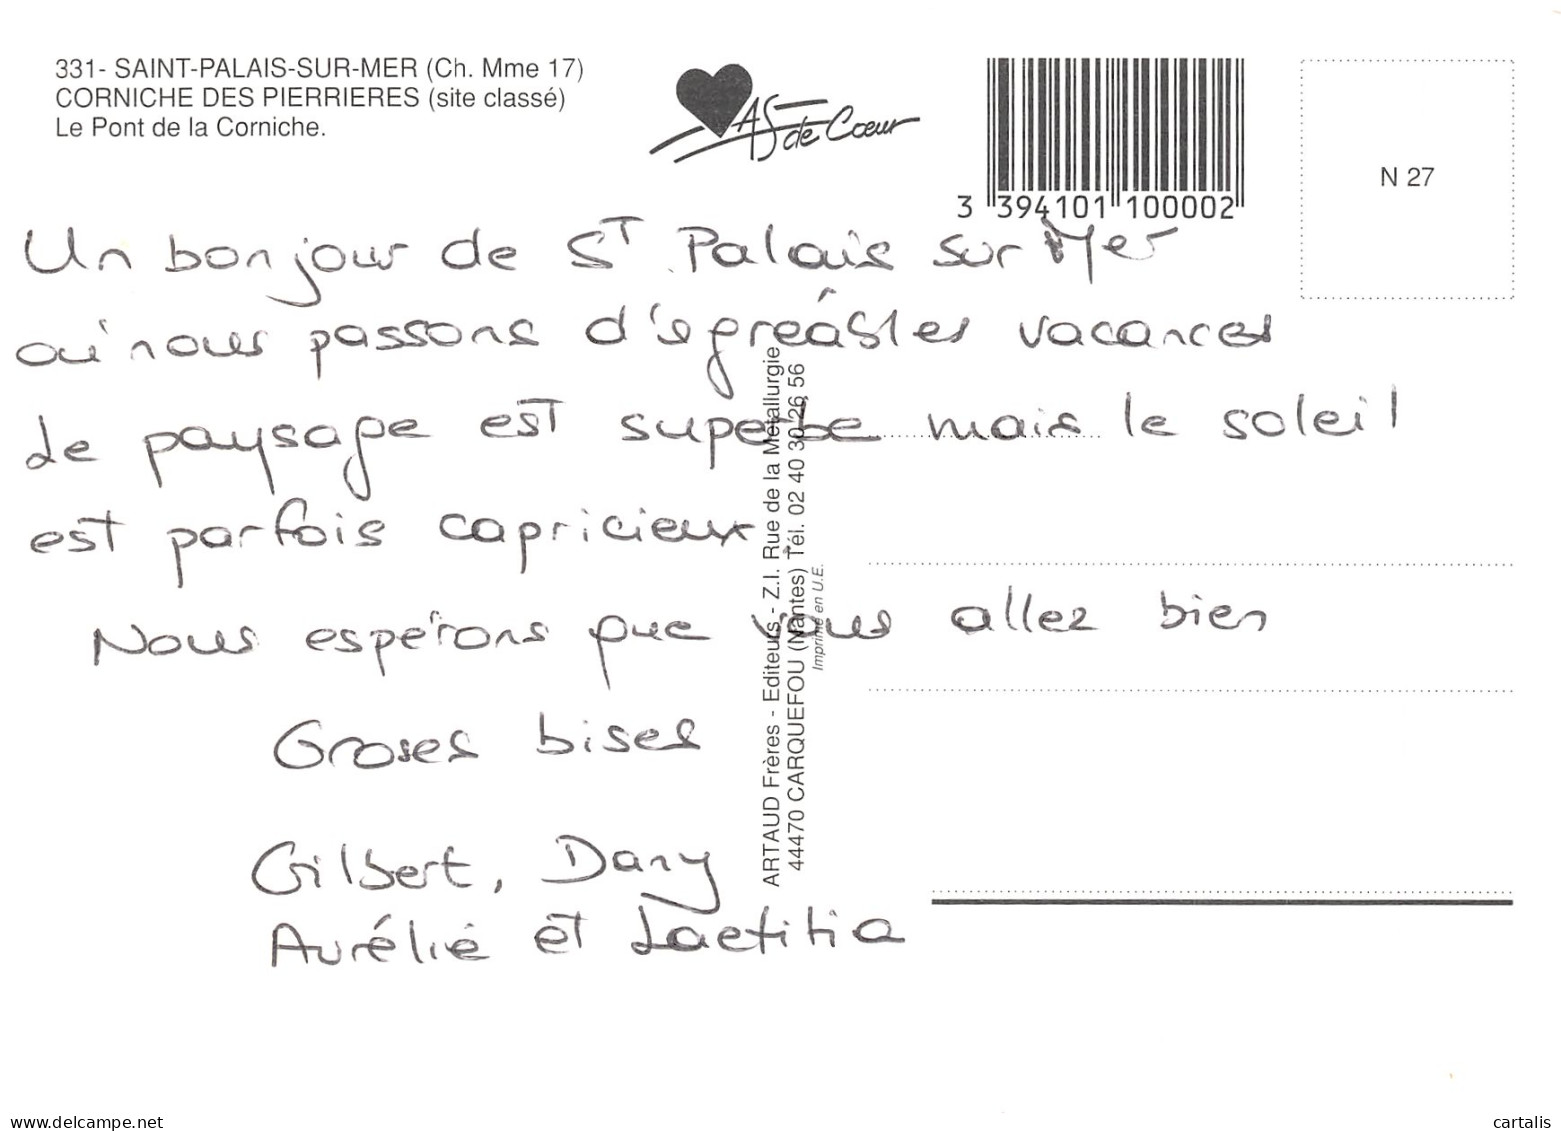 331- SAINT-PALAIS-SUR-MER (Ch. Mme 17)
CORNICHE DES PIERRIERES (site classé)
Le Pont de la Corniche.
AS de Cœur
3 394101 100002
N 27
Un bonjour de ST Palais sur Mer
où nous passons d'agréables vacances
Le paysage est superbe mais le soleil
est parfois capricieux
Nous espérons que vous allez bien
Groses bises
Gilbert, Dany
Aurélie et Laetitia
ARTAUD Frères - Editeurs - Z.I. Rue de la Métallurgie
44470 CARQUEFOU (Nantes) Tél. 02 40 30 26 56
Imprimé en U.E.
www.delcampe.net
cartalis